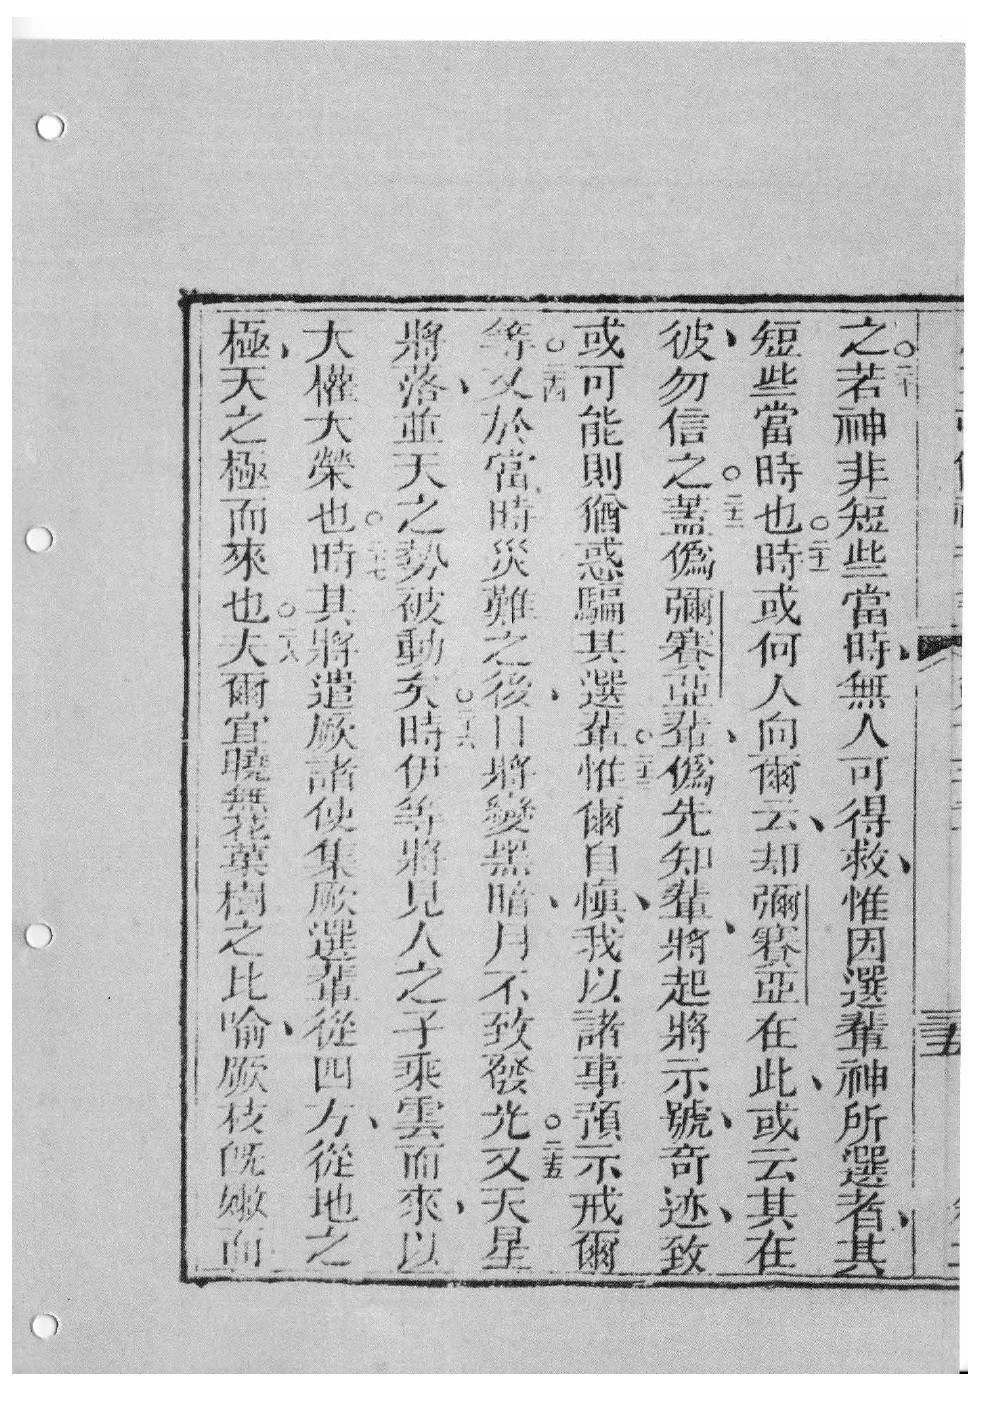 之○二十若神非短些當時、無人可得救、惟因選輩神所選者、其
短些當時也○二十一時或何人向爾云、却彌賽亞在此、或云其在
彼、勿信之○二十二蓋僞彌賽亞輩、僞先知輩、將起將示號、奇迹、致
或可能則猶惑騙其選輩○二十三惟爾自愼、我以諸事預示戒爾
等○二十四又於當時災難之後、日將變黑暗、月不致發光○二十五又天星
將落、並天之勢被動矣○二十六時伊等將見人之子乘雲而來、以
大權大榮也○二十七時其將遣厥諸使集厥選輩從四方、從地之
極、天之極而來也○二十八夫爾宜曉無花菓樹之比喻、厥枝旣嫩而